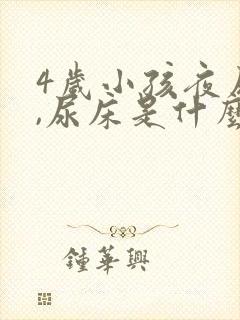 4歲小孩夜
,尿床是什麼
鍾華興